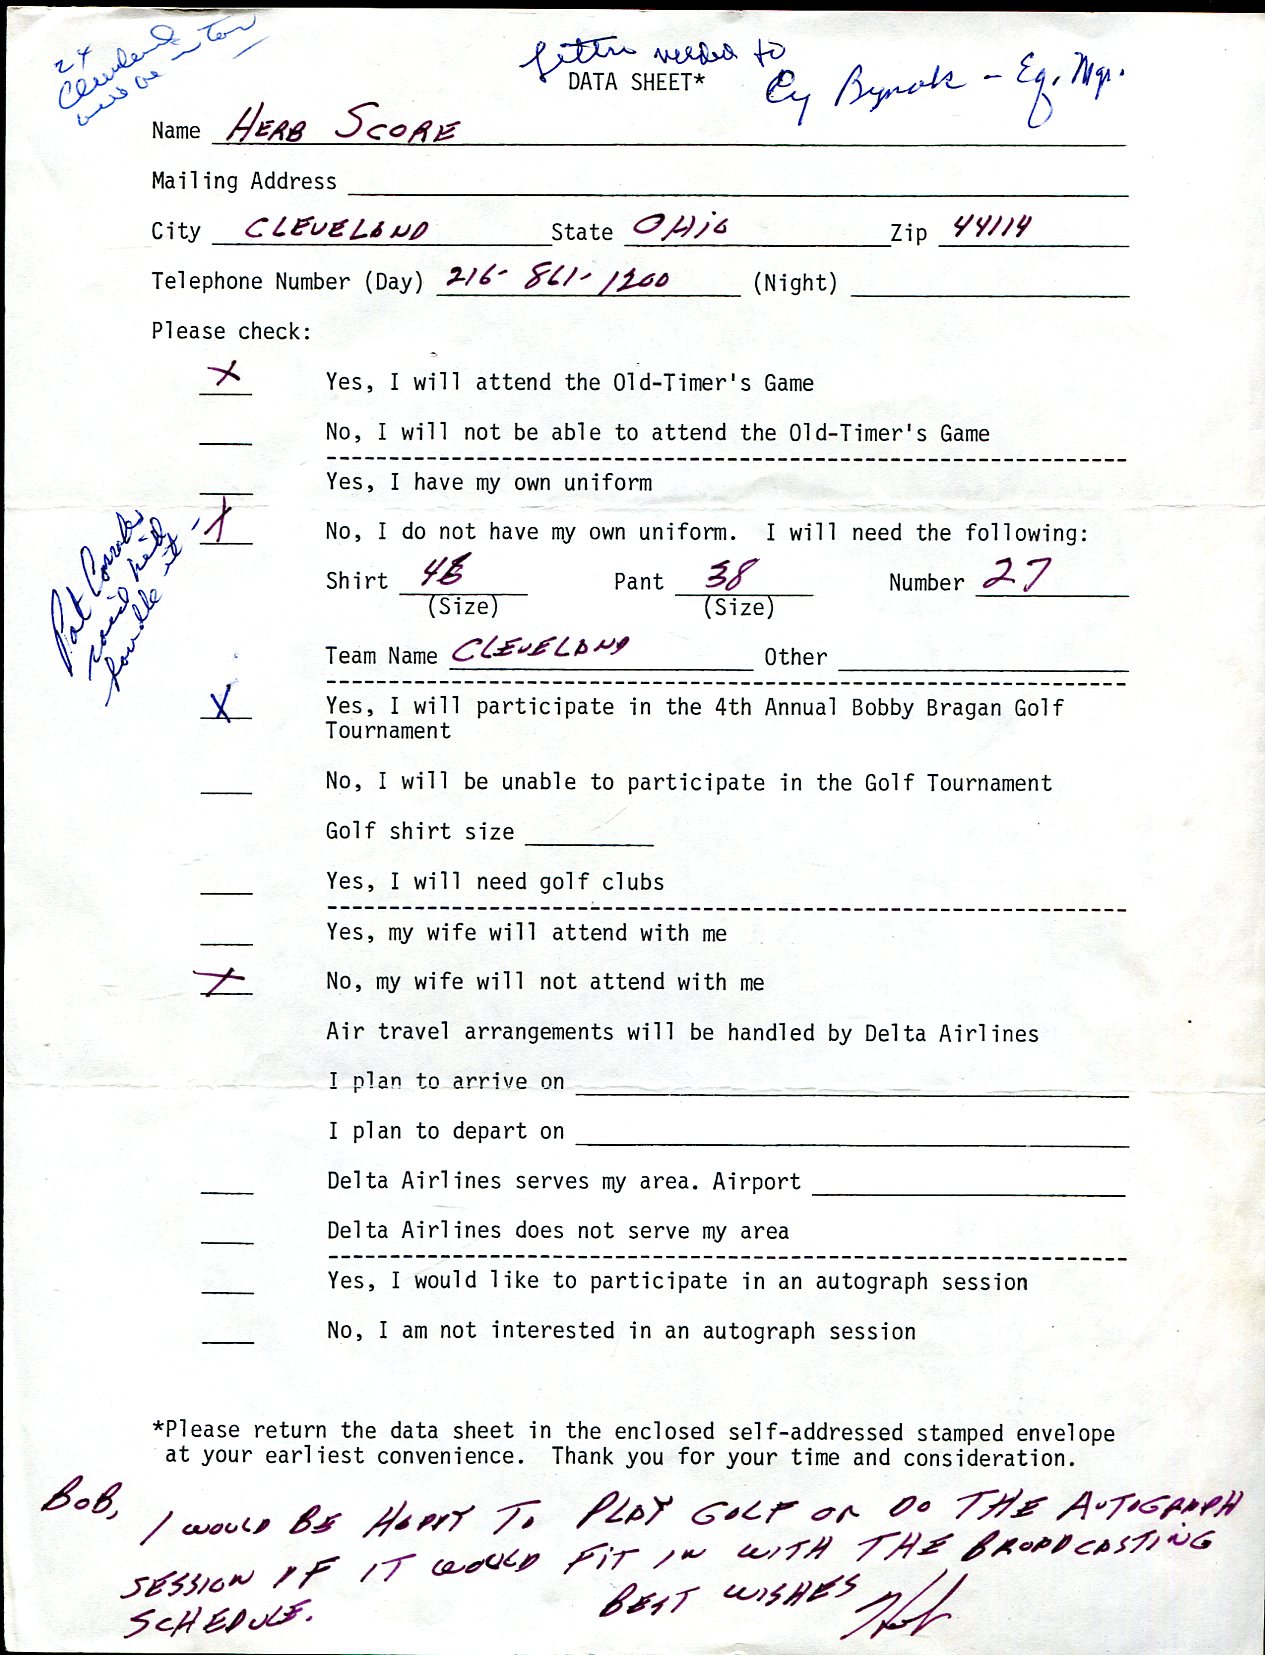 24
Cleveland
will be in Town
letter needed to
Cy Bynak - Eq. Mgr.
DATA SHEET*
Name HERB SCORE
Mailing Address
City CLEVELAND State OHIO Zip 44114
Telephone Number (Day) 216-861-1200 (Night)
Please check:
X Yes, I will attend the Old-Timer's Game
No, I will not be able to attend the Old-Timer's Game
Yes, I have my own uniform
X No, I do not have my own uniform. I will need the following:
Pat Corrales
said he'd
handle it
Shirt 46 Pant 38 Number 27
(Size) (Size)
Team Name CLEVELAND Other
X Yes, I will participate in the 4th Annual Bobby Bragan Golf
Tournament
No, I will be unable to participate in the Golf Tournament
Golf shirt size
Yes, I will need golf clubs
Yes, my wife will attend with me
X No, my wife will not attend with me
Air travel arrangements will be handled by Delta Airlines
I plan to arrive on
I plan to depart on
Delta Airlines serves my area. Airport
Delta Airlines does not serve my area
Yes, I would like to participate in an autograph session
No, I am not interested in an autograph session
*Please return the data sheet in the enclosed self-addressed stamped envelope
at your earliest convenience. Thank you for your time and consideration.
BOB,
I WOULD BE HAPPY TO PLAY GOLF OR DO THE AUTOGRAPH
SESSION IF IT WOULD FIT IN WITH THE BROADCASTING
SCHEDULE. BEST WISHES Herb